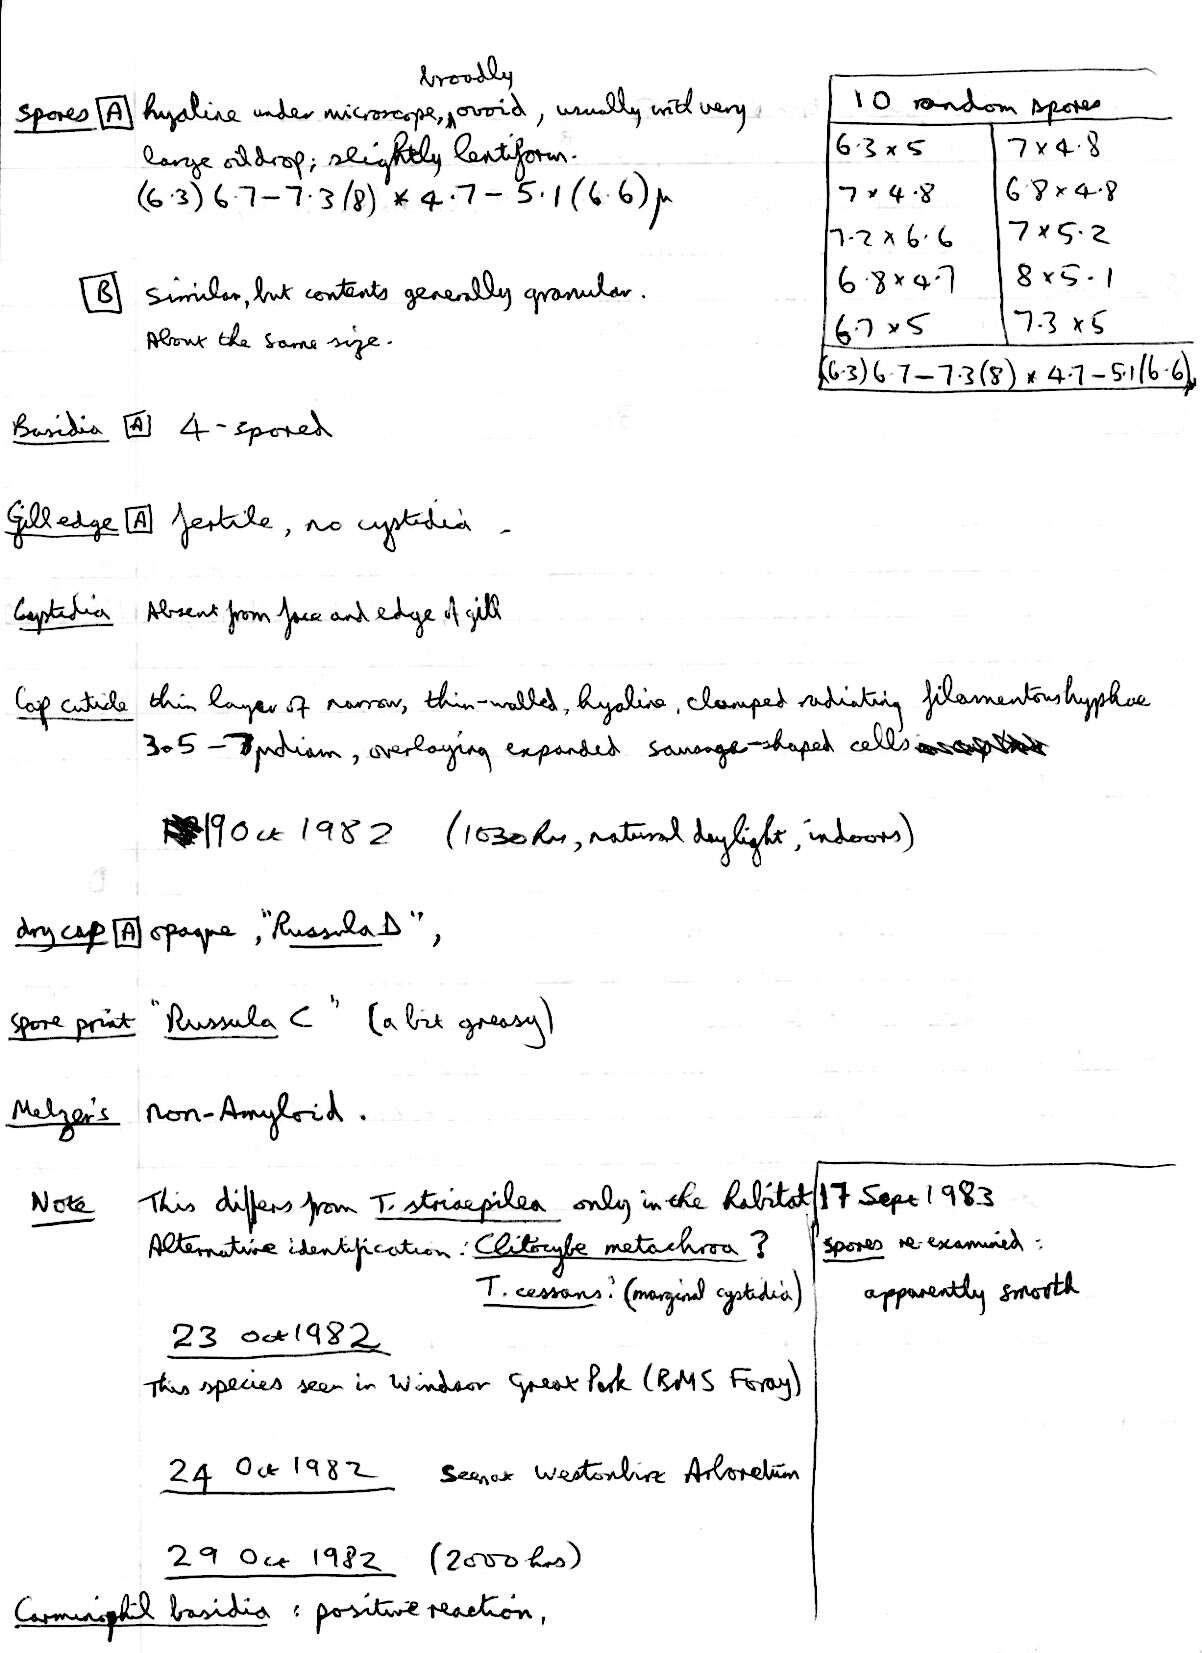 broadly
Spores [A] hyaline under microscope, ^ ovoid, usually with very
large oil drop; slightly lentiform.
(6.3) 6.7 – 7.3 (8) × 4.7 – 5.1 (6.6) µ
[B] Similar, but contents generally granular.
About the same size.
10 random spores
6.3 × 5 7 × 4.8
7 × 4.8 6.8 × 4.8
7.2 × 6.6 7 × 5.2
6.8 × 4.7 8 × 5.1
6.7 × 5 7.3 × 5
(6.3) 6.7 – 7.3 (8) × 4.7 – 5.1 (6.6)
Basidia [A] 4-spored
Gill edge [A] fertile, no cystidia -
Cystidia Absent from face and edge of gill
Cap cuticle thin layer of narrow, thin-walled, hyaline, clamped radiating filamentous hyphae
3.5 – 7 µ diam, overlaying expanded sausage-shaped cells
19 Oct 1982 (1030 hrs, natural daylight, indoors)
dry cap [A] opaque, "Russula D",
spore print "Russula C" (a bit greasy)
Melzer's non-Amyloid.
Note This differs from T. striaepilea only in the habitat
Alternative identification: Clitocybe metachroa?
T. cessans? (marginal cystidia)
23 Oct 1982
This species seen in Windsor Great Park (BMS Foray)
24 Oct 1982 seen at Westonbirt Arboretum
29 Oct 1982 (2000 hrs)
Carminophil basidia: positive reaction,
17 Sept 1983
spores re-examined:
apparently smooth